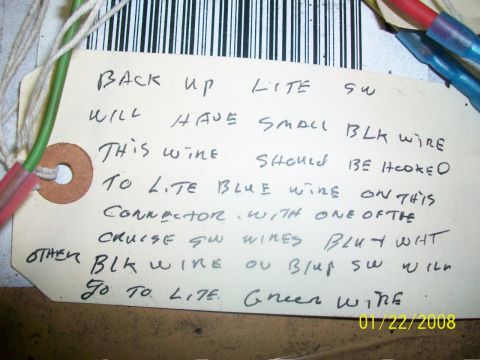 BACK UP LITE SW
WILL HAVE SMALL BLK WIRE
THIS WIRE SHOULD BE HOOKED
TO LITE BLUE WIRE ON THIS
CONNECTOR. WITH ONE OF THE
CRUISE SW WIRES BLK + WHT
OTHER BLK WIRE ON B/UP SW WILL
GO TO LITE GREEN WIRE
01/22/2008